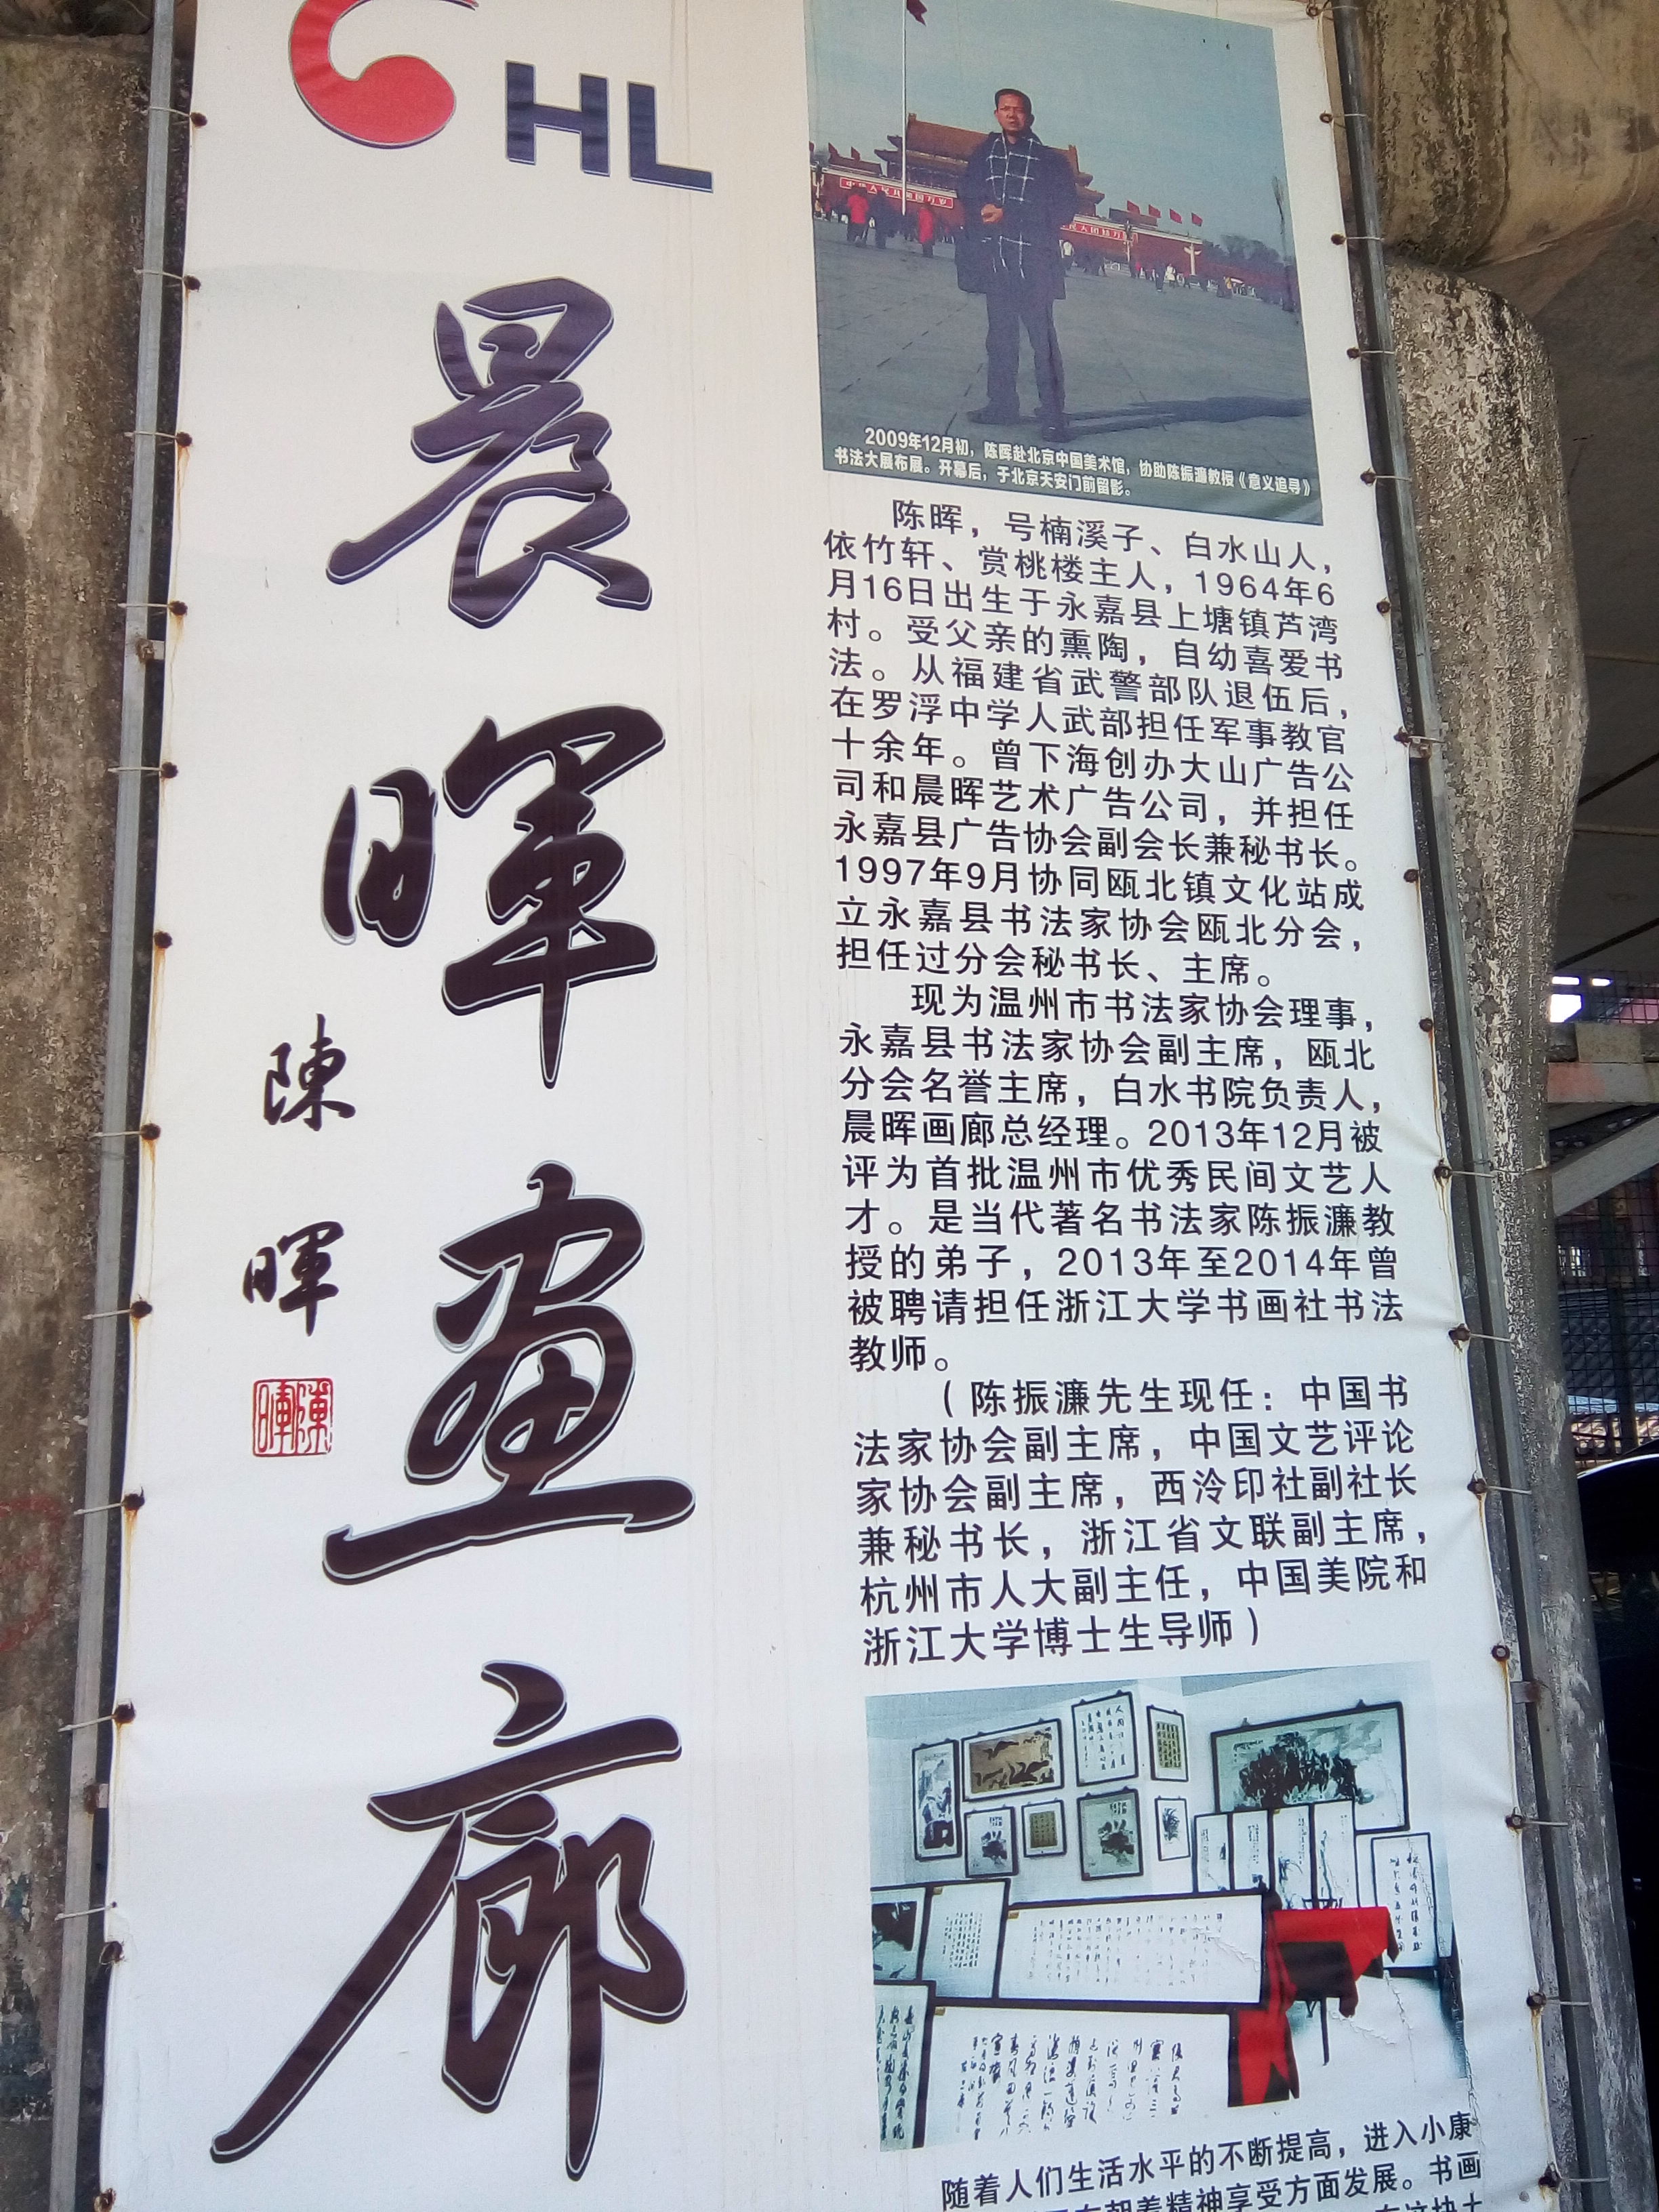 HL
晨暉画廊
陳暉
陳暉
中华人民共和国万岁
2009年12月初，陈晖赴北京中国美术馆，协助陈振濂教授《意义追寻》
书法大展布展。开幕后，于北京天安门前留影。
陈晖，号楠溪子、白水山人，
依竹轩、赏桃楼主人，1964年6
月16日出生于永嘉县上塘镇芦湾
村。受父亲的熏陶，自幼喜爱书
法。从福建省武警部队退伍后，
在罗浮中学人武部担任军事教官
十余年。曾下海创办大山广告公
司和晨晖艺术广告公司，并担任
永嘉县广告协会副会长兼秘书长。
1997年9月协同瓯北镇文化站成
立永嘉县书法家协会瓯北分会，
担任过分会秘书长、主席。
现为温州市书法家协会理事，
永嘉县书法家协会副主席，瓯北
分会名誉主席，白水书院负责人，
晨晖画廊总经理。2013年12月被
评为首批温州市优秀民间文艺人
才。是当代著名书法家陈振濂教
授的弟子，2013年至2014年曾
被聘请担任浙江大学书画社书法
教师。
（陈振濂先生现任：中国书
法家协会副主席，中国文艺评论
家协会副主席，西泠印社副社长
兼秘书长，浙江省文联副主席，
杭州市人大副主任，中国美院和
浙江大学博士生导师）
随着人们生活水平的不断提高，进入小康
朝着精神享受方面发展。书画